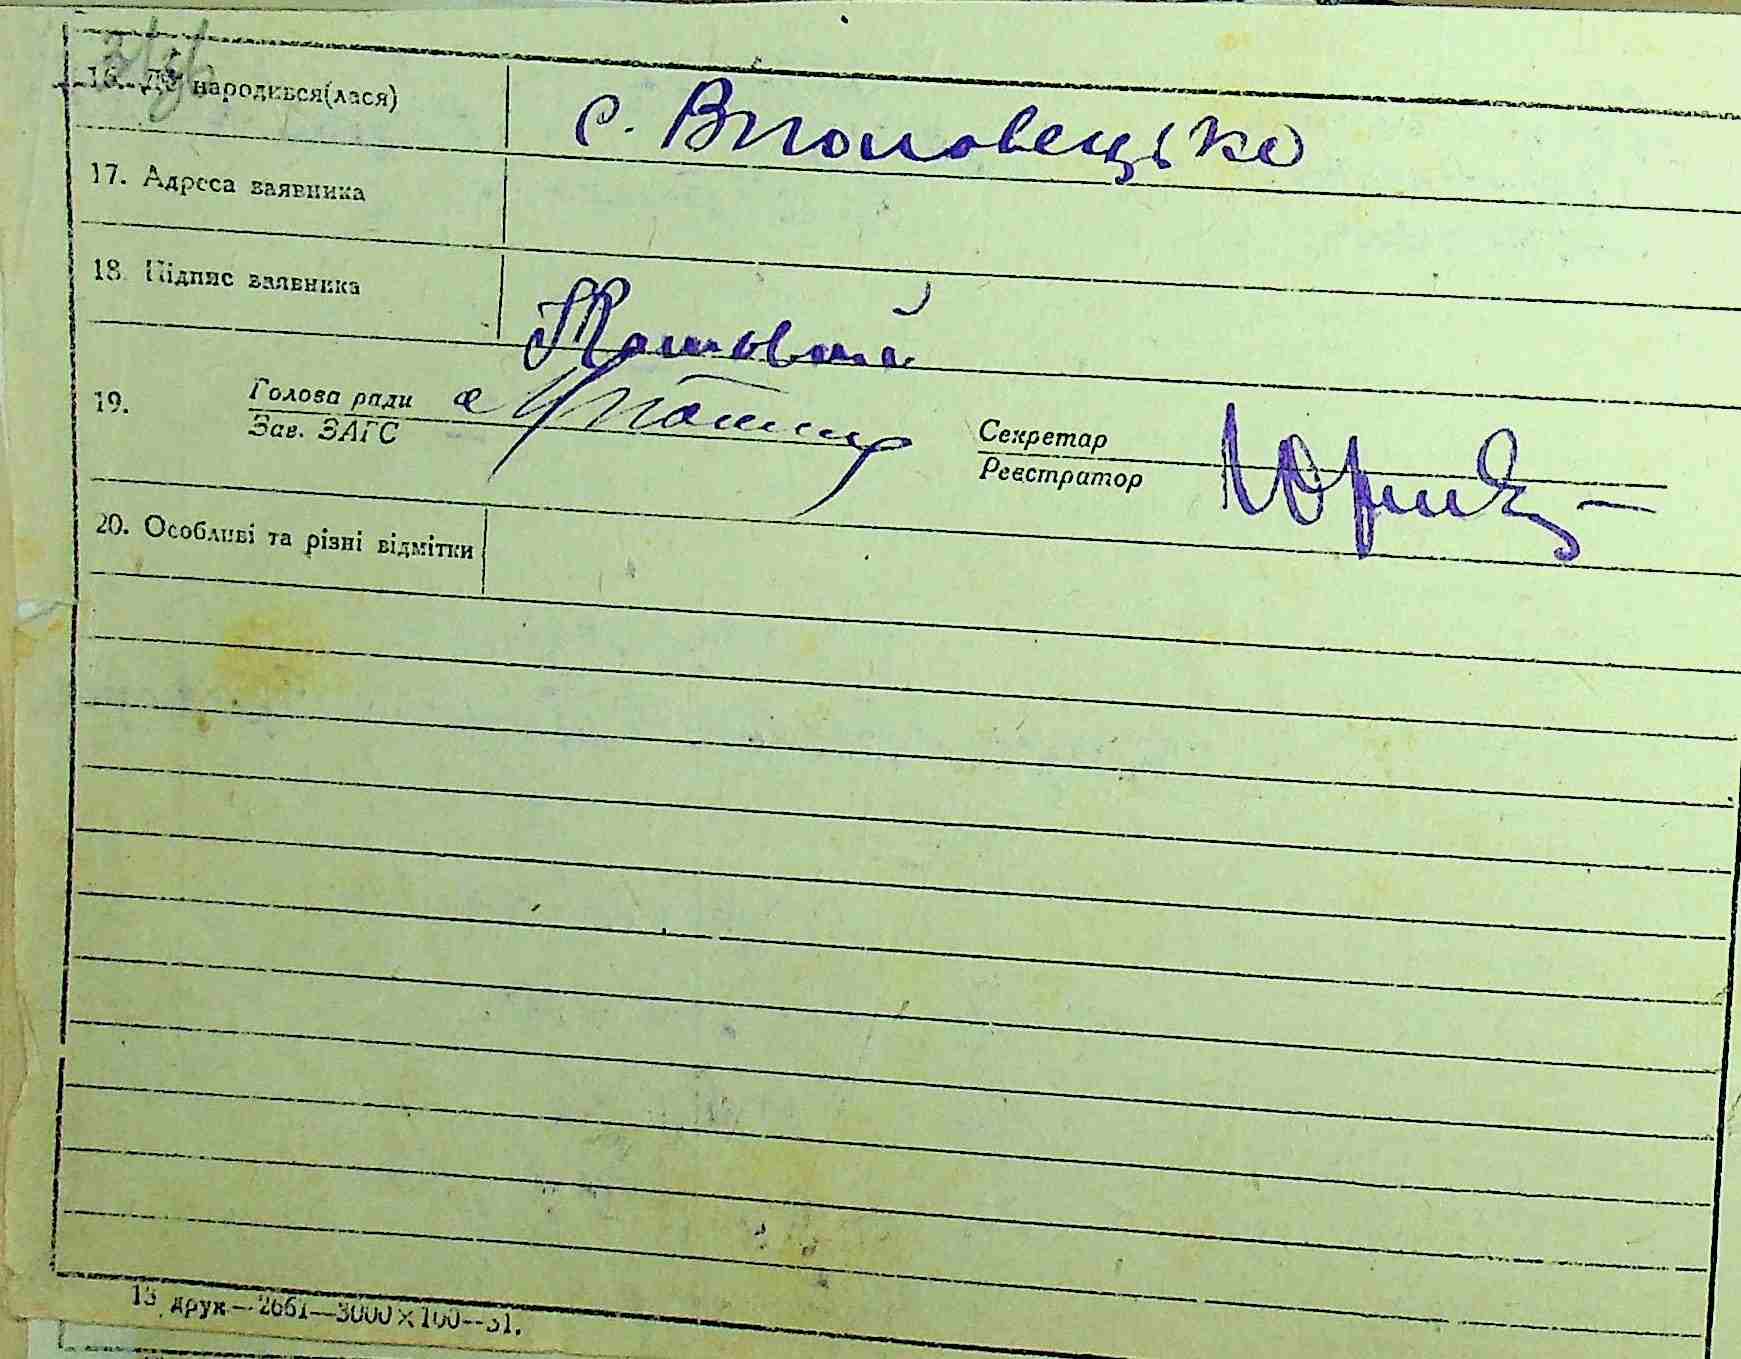 16. Де народився(лася) с. Вполовецьке
17. Адреса заявника
18. Підпис заявника
19. Голова ради
Зав. ЗАГС
Секретар
Реєстратор
20. Особливі та різні відмітки
13 друк—2661—3000×100—31.